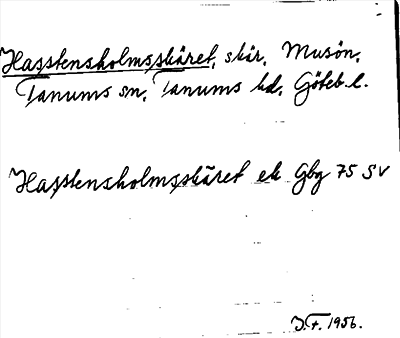 Hasstensholmsskäret, skär, Musön,
Tanums sn, Tanums hd, Göteb. l.
Hasstensholmsskäret ek Gbg 75 SV
J.F. 1956.